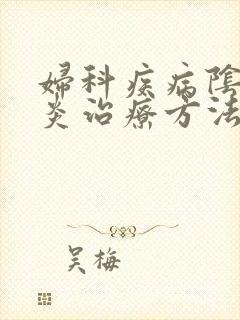 婦科疾病陰
炎治療方法
吴梅